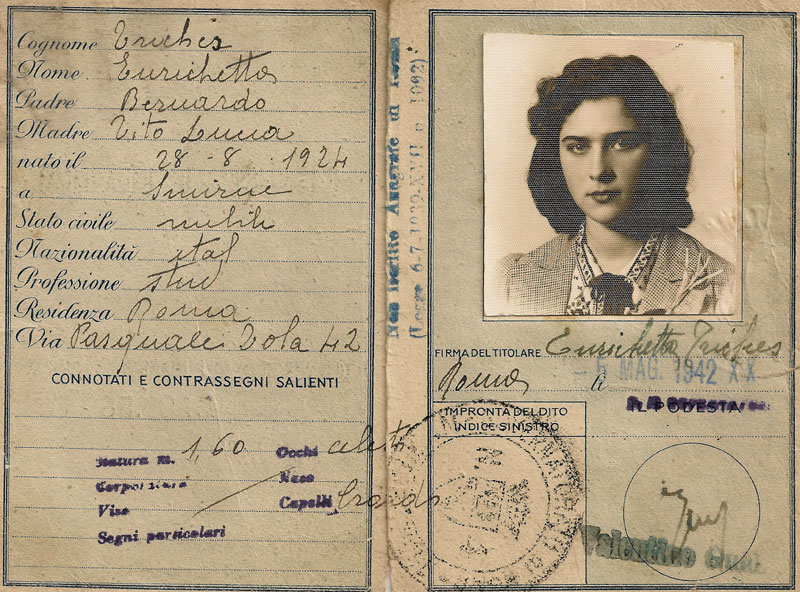 Cognome Triches
Nome Enrichetta
Padre Bernardo
Madre Vito Lucia
nato il 28-8-1924
a Smirne
Stato civile nubile
Nazionalità ital
Professione stud
Residenza Roma
Via Pasquale Tola 42
CONNOTATI E CONTRASSEGNI SALIENTI
Statura m. 1,60
Corporatura
Viso
Segni particolari
Occhi celesti
Naso
Capelli biondi
Non iscritto Anagrafe di Roma
(Legge 6-7-1939-XVII n. 1092).
FIRMA DEL TITOLARE Enrichetta Triches
Roma li - 5 MAG. 1942 XX
IL PODESTÀ
IMPRONTA DEL DITO
INDICE SINISTRO
Valentino